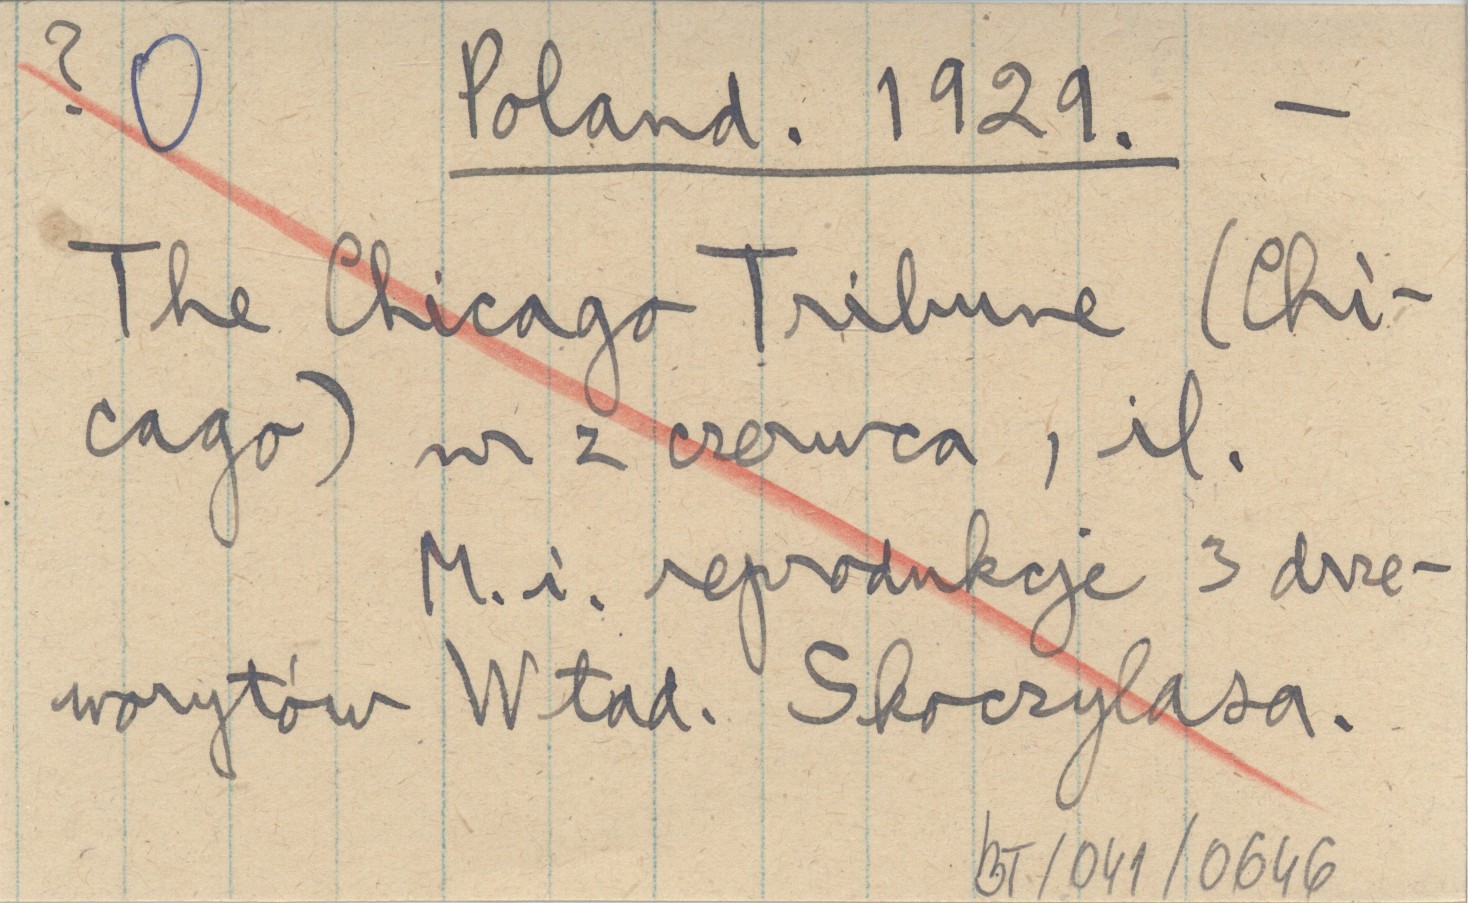 ? 0 Poland. 1929. —
The Chicago Tribune (Chi-
cago) nr z czerwca, il.
M.i. reprodukcje 3 drze-
worytów Wład. Skoczylasa.
BT/041/0646